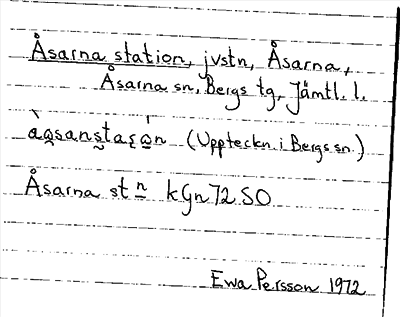 Åsarna station, jvstn, Åsarna,
Åsarna sn, Bergs tg, Jämtl. l.
(Uppteckn. i Bergs sn.)
Åsarna st n kGn72 SO
Ewa Persson 1972